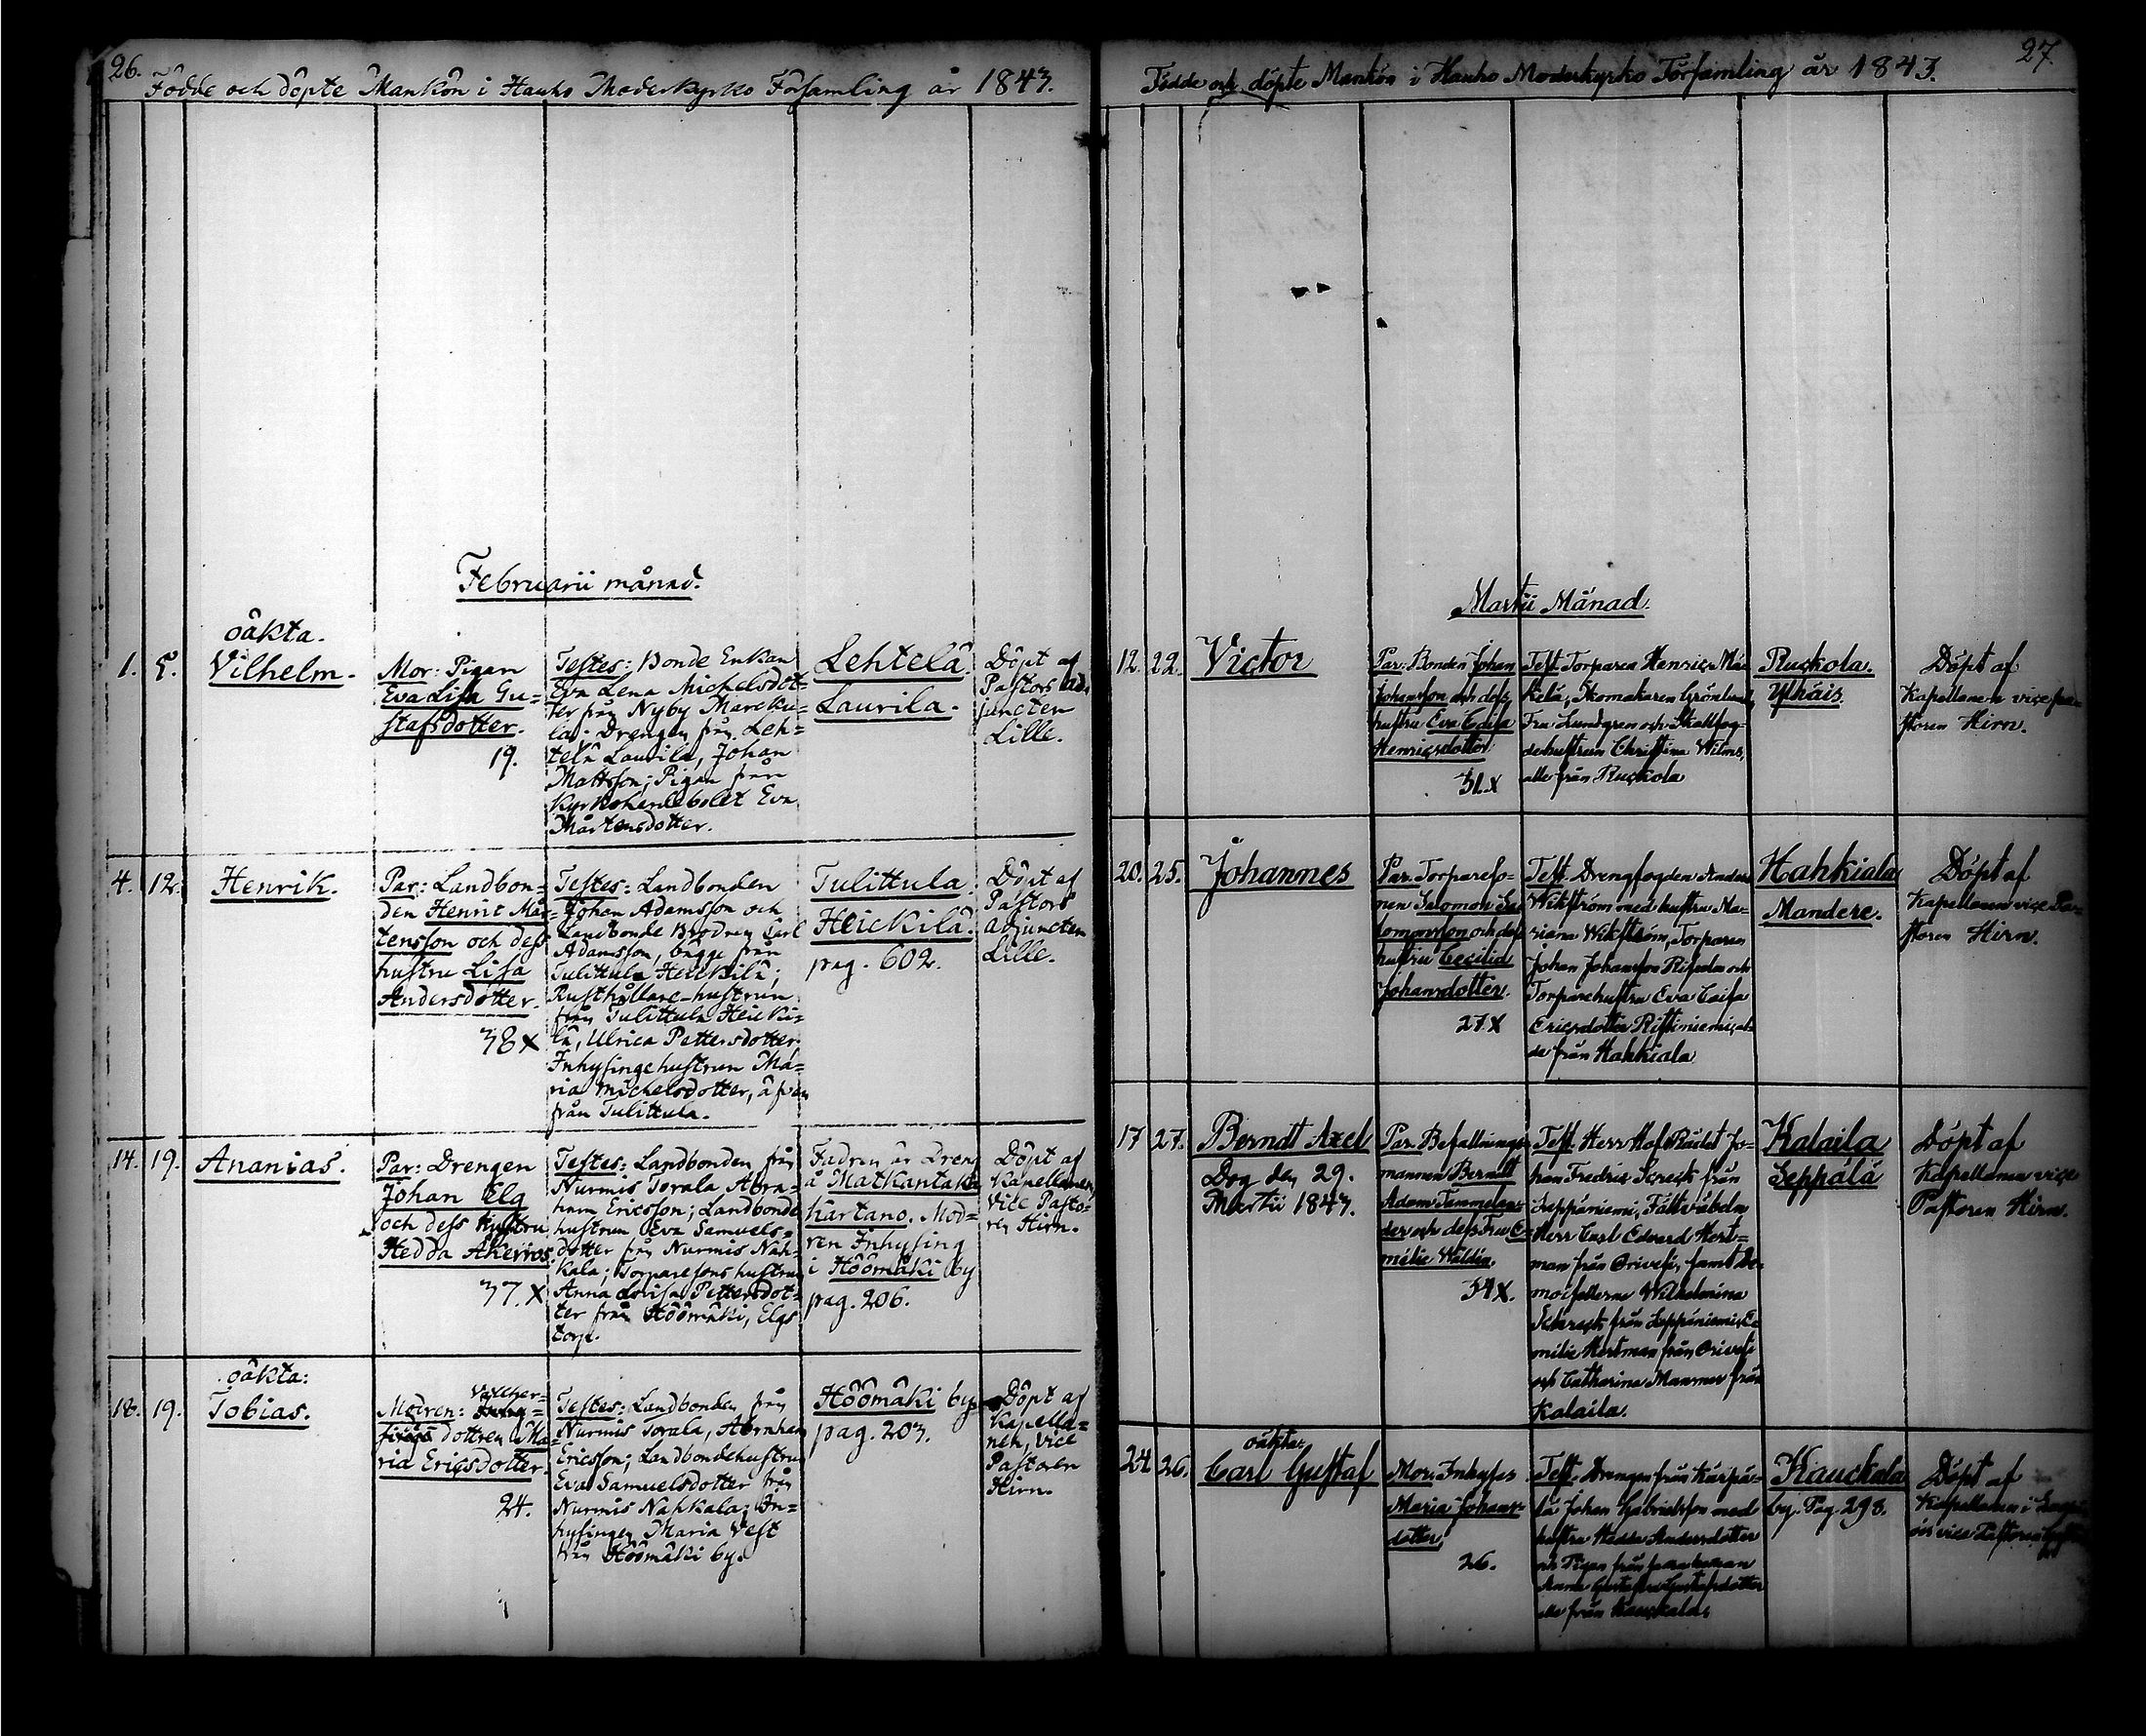 26.
Födde och döpte Mankön i Hauho Moderkyrko Församling år 1843.
Februarii månad.
1. 5.
oäkta.
Vilhelm.
Mor: Pigan
Eva Lisa Gu-
stafsdotter.
19.
Testes: Bonde Enkan
Eva Lena Michelsdot-
ter från Nyby Marcku-
la; Drengen från Leh-
telä Laurila, Johan
Mattsson; Pigan från
Kyrkoherdebolet Eva
Mårtensdotter.
Lehtelä
Laurila.
Döpt af
Pastors Ad-
juncten
Lille.
4. 12.
Henrik.
Par: Landbon-
den Henric Mår-
tensson och dess
hustru Lisa
Andersdotter.
38 x
Testes: Landbonden
Johan Adamsson och
Landbonde Brodren Carl
Adamsson, bägge från
Tulittula Heickilä;
Rusthållare-hustrun
från Tulittula Heicki-
lä, Ulrica Pettersdotter
Inhysingehustrun Ma-
ria Michelsdotter, äfven
från Tulittula.
Tulittula
Heickilä.
pag. 602.
Döpt af
Pastors
adjuncten
Lille.
14. 19.
Ananias.
Par: Drengen
Johan Elg
och dess hustru
Hedda Akerros.
37. x
Testes: Landbonden från
Nurmis Sorala Abra-
ham Ericsson; Landbonde
hustrun Eva Samuels-
dotter från Nurmis Nah-
kala; Torparesons hustrun
Anna Lovisa Pettersdot-
ter från Höömäki, Elgs
torp.
Fadren är Dreng
å Matkantaka
Kartano. Mod-
ren Inhysing
i Höömäki by
pag. 206.
Döpt af
Kapellanen,
vice Pasto-
ren Hirn.
18. 19.
oäkta:
Tobias.
Modren:
dottren Ma-
ria Ericsdotter.
24.
Testes: Landbonden från
Nurmis Sorala, Abraham
Ericsson; Landbondehustrun
Eva Samuelsdotter från
Nurmis Nahkala; In-
hysingen Maria Vest
från Höömäki by.
Höömäki by
pag. 203.
Döpt af
Kapella-
nen, vice
Pastoren
Hirn.
27.
Födde och döpte Mankön i Hauho Moderkyrko Församling år 1843.
Martii Månad.
12. 22.
Victor
Par. Bonden Johan
Johansson och dess
hustru Eva Caisa
Henricsdotter
31. x
Test. Torparen Henric Mäc-
kilä, Skomakaren Grönlund,
Fru Lundgren och Stallfog-
dehustrun Christina Wilms,
alla från Ruckola
Ruckola.
Yhäis.
Döpt af
Kapellanen vice pa-
storen Hirn.
20. 25.
Johannes
Par. Torpareso-
nen Salomon Sa-
lomonsson och dess
hustru Cecilia
Johansdotter.
27. x
Test. Drengfogden Anders
Wikström med hustru Ma-
riana Wikström, Torparen
Johan Johansson och
Torparehustru Eva Caisa
Ericsdotter Ristiniemi
från Hahkiala
Hahkiala
Mandere.
Döpt af
Kapellanen vice Pa-
storen Hirn.
17 27.
Berndt Axel
Dog den 29.
Martii 1843.
Par. Befallnings-
mannen Berndt
Adam
och dess Fru E-
milie Waldia.
34 x.
Test. Herr Hof Rådet Jo-
han Fredric Schreck från
Leppäniemi, Fältväbeln
Herr Carl Edvard Hert-
man från Orivesi, samt De-
moisellerne Wilhelmina
Schreck från Leppäniemi, E-
milie Hertman från Orivesi
och Catharina från
Kalaila.
Kalaila
Seppälä
Döpt af
Kapellanen vice
Pastoren Hirn.
24. 26.
oäkta:
Carl Gustaf
Mor. Inhyses
Maria Johans-
dotter,
26.
Test. Drengen från Kärpä-
lä Johan Gabrielsson med
hustru Hedda Andersdotter
och Pigan från
Anna Gustafva Gustafsdotter
alla från Kauckala.
Kauckala
by. Pag. 293.
Döpt af
Kapellanen i
vice Pastoren